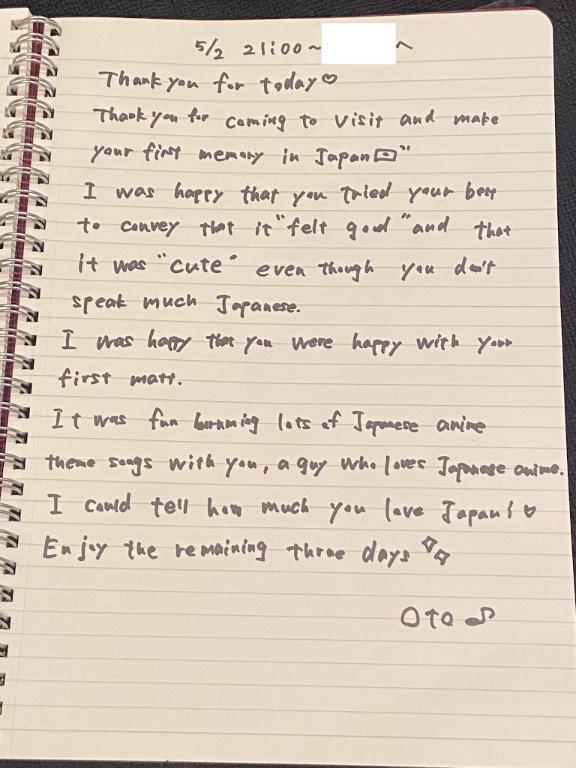 5/2 21:00~ ~
Thank you for today♡
Thank you for coming to visit and make
your first memory in Japan🇯🇵"
I was happy that you tried your best
to convey that it "felt good" and that
it was "cute" even though you don't
speak much Japanese.
I was happy that you were happy with your
first matt.
It was fun humming lots of Japanese anime
theme songs with you, a guy who loves Japanese anime.
I could tell how much you love Japan! ♡
Enjoy the remaining three days
Oto ♫